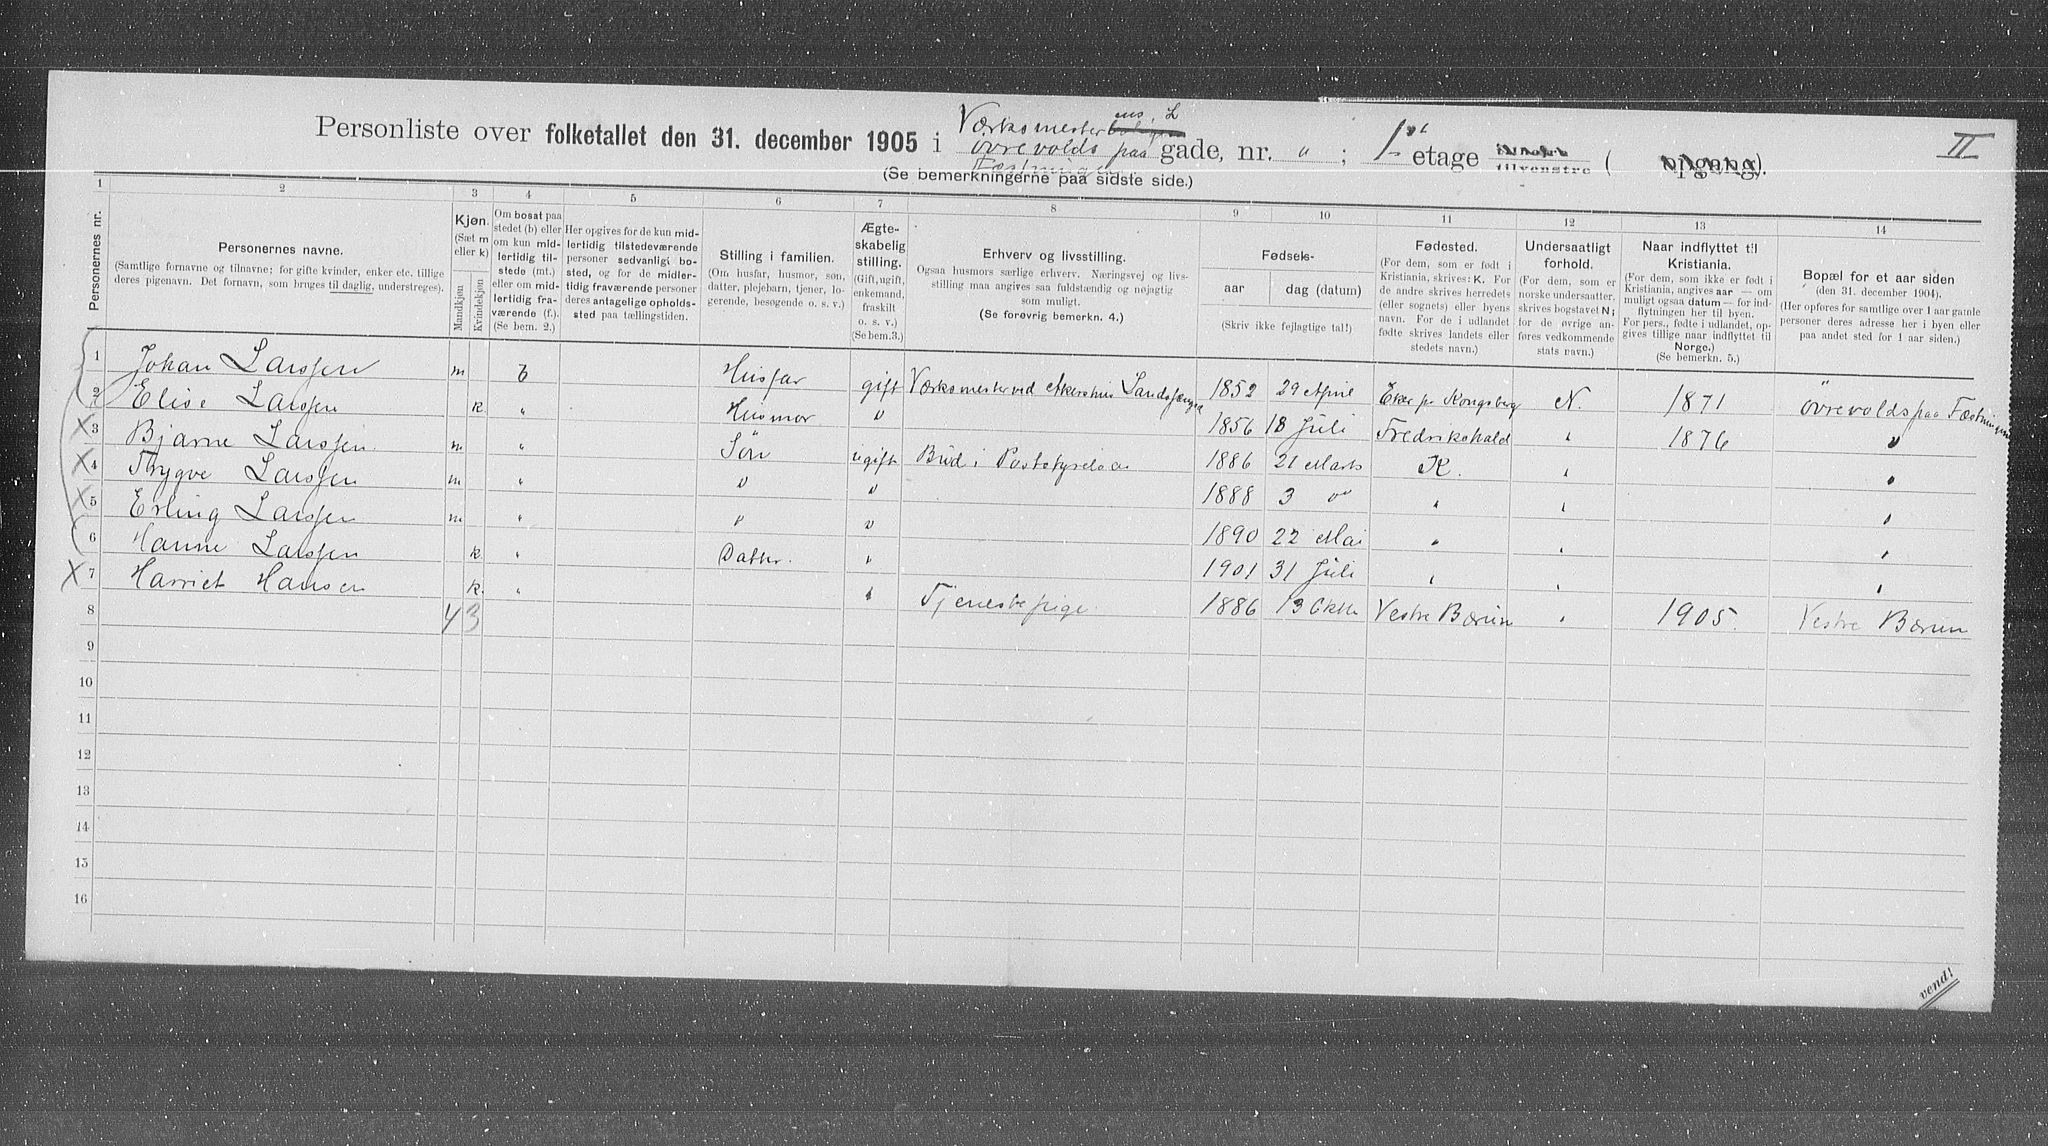 Værksmester ens. L
Personliste over folketallet den 31. december 1905 i øvrevolds paa gade, nr. " ; 1ste etage tilvenstre ( opgang).
Fæstningen
II
(Se bemerkningerne paa sidste side.)
1 2 3 4 5 6 7 8 9 10 11 12 13 14
Personernes nr.
Personernes navne.
(Samtlige fornavne og tilnavne; for gifte kvinder, enker etc. tillige
deres pigenavn. Det fornavn, som bruges til daglig, understreges).
Kjøn.
(Sæt m
eller k)
Mandkjøn
Kvindekjøn
Om bosat paa
stedet (b) eller
om kun mid-
lertidig til-
stede (mt.)
eller om mid-
lertidig fra-
værende (f.).
(Se bem. 2.)
Her opgives for de kun mid-
lertidig tilstedeværende
personer sedvanlig bo-
sted, og for de midler-
tidig fraværende personer
deres antagelige opholds-
sted paa tællingstiden.
Stilling i familien.
(Om husfar, husmor, søn,
datter, plejebarn, tjener, lo-
gerende, besøgende o. s. v.)
Ægte-
skabelig
stilling.
(Gift, ugift,
enkemand,
fraskilt
o. s. v.)
(Se bem. 3.)
Erhverv og livsstilling.
Ogsaa husmors særlige erhverv. Næringsvej og livs-
stilling maa angives saa fuldstændig og nøjagtig
som muligt.
(Se forøvrig bemerkn. 4.)
Fødsels-
aar
dag (datum)
(Skriv ikke fejlagtige tal!)
Fødested.
(For dem, som er født i
Kristiania, skrives: K. For
de andre skrives herredets
(eller sognets) eller byens
navn. For de i udlandet
fødte skrives landets eller
stedets navn.)
Undersaatligt
forhold.
(For dem, som er
norske undersaatter,
skrives bogstavet N;
for de øvrige an-
føres vedkommende
stats navn.)
Naar indflyttet til
Kristiania.
(For dem, som ikke er født i
Kristiania, angives aar — om
muligt ogsaa datum — for ind-
flytningen her til byen.
For pers., fødte i udlandet, op-
gives tillige naar indflyttet til
Norge.)
(Se bemerkn. 5.)
Bopæl for et aar siden
(den 31. december 1904).
(Her opføres for samtlige over 1 aar gamle
personer deres adresse her i byen eller
paa andet sted for 1 aar siden.)
1 Johan Larssen m b Husfar gift Værksmester ved Akershus Landsfængsel 1852 29 April Eker pr Kongsberg N. 1871 Øvrevolds paa Fæstningen
2 Elise Larssen k " Husmor " 1856 18 Juli Fredrikshald " 1876 "
X 3 Bjarne Larssen m " Søn ugift Bud i Poststyrelsen 1886 21 Marts K. " "
X 4 Trygve Larssen m " " " 1888 3 " " " "
X 5 Erling Larssen m " " " 1890 22 Mai " " "
6 Hanne Larssen k " Datter. " 1901 31 Juli " " "
X 7 Harriet Hansen k. " " Tjenestepige. 1886 13 Oktb Vestre Bærum " 1905. Vestre Bærum
8 4 3
9
10
11
12
13
14
15
16
vend!